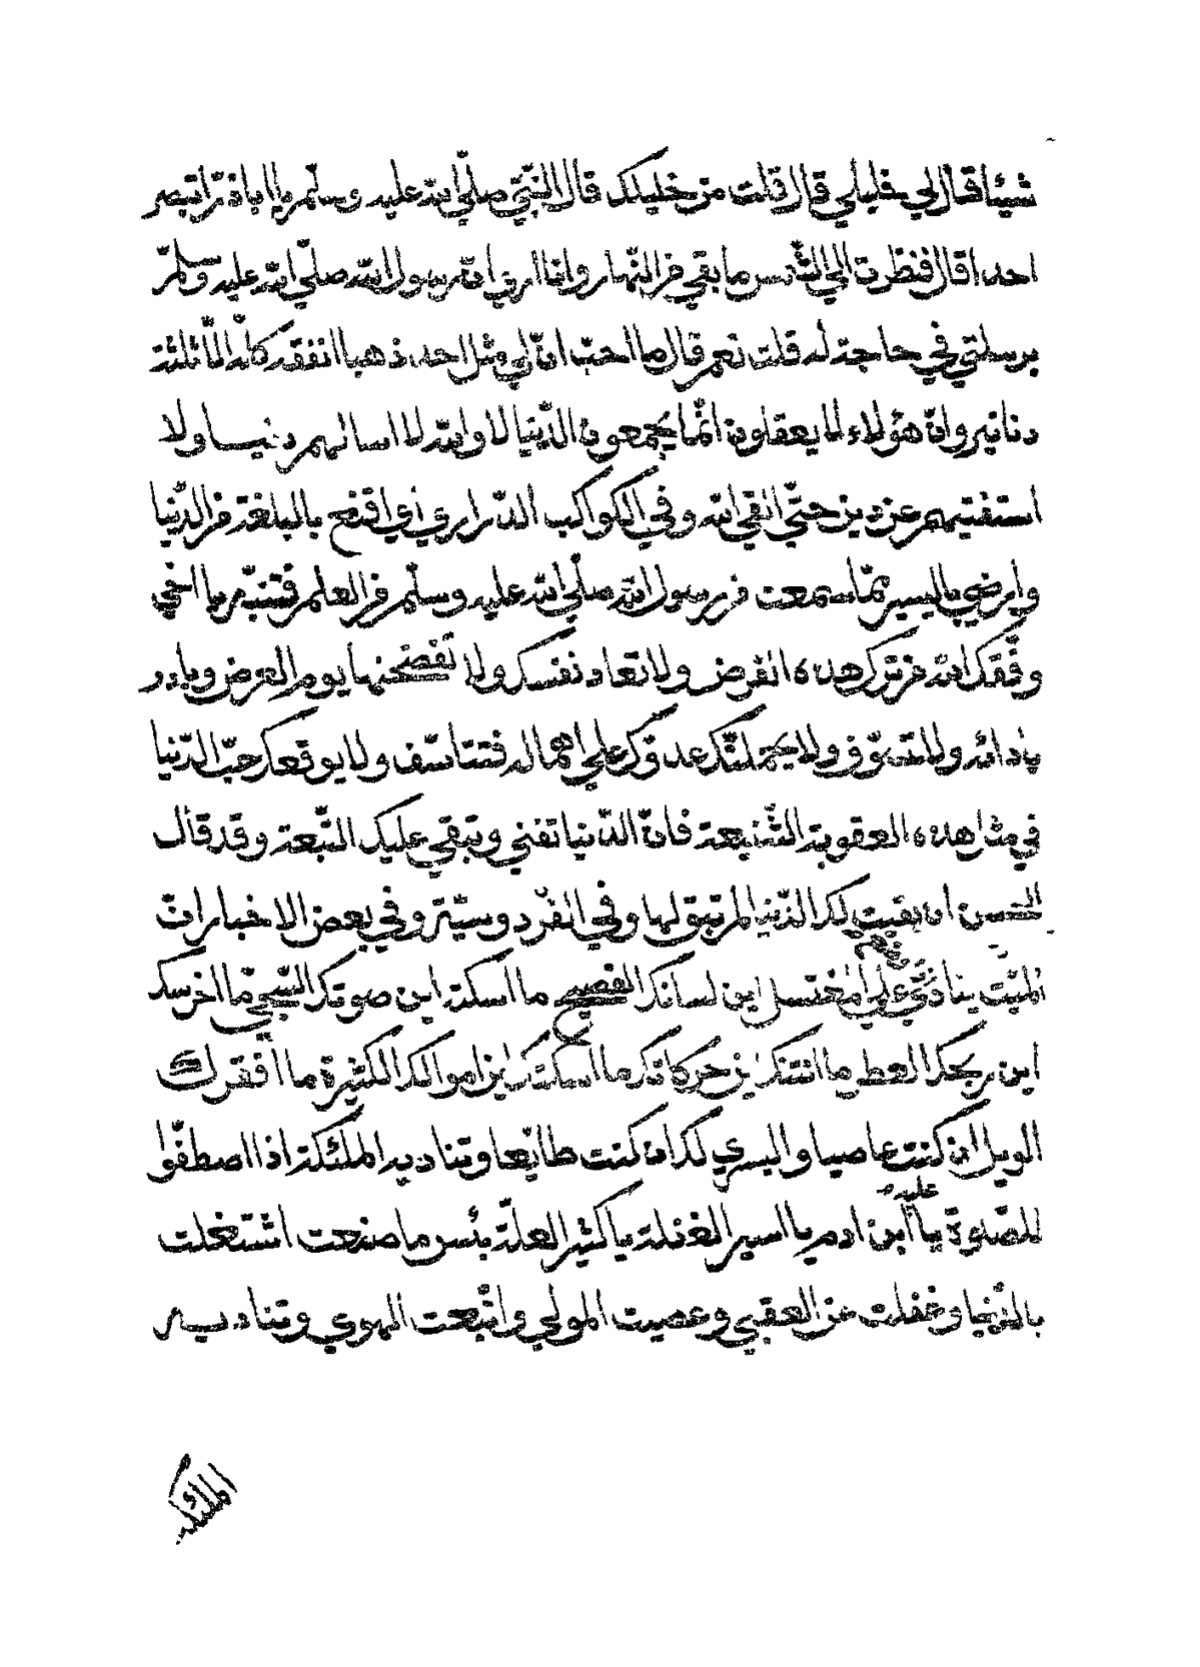 شيئا قال لي خليلي قال قلت من خليلك قال النبي صلّي الله عليه وسلّم يا اباذرّ اتبصر
احدا قال فنظرت الي الشمس ما بقي من النّهار وانا اري ان رسول الله صلّي الله عليه وسلّم
يرسلني في حاجة له قلت نعم قال ما احبّ انّ لي مثل احد ذهبا انفقه كلّه الّا ثلثة
دنانير وانّ هؤلاء لا يعقلون انّما يجمعون الدّنيا لا والله لا اسالهم دنيا ولا
استفتيهم عن دين حتّي القي الله وفي الكواكب الدّراري اي اقنع بالبلغة من الدّنيا
وارضي باليسير ممّا سمعت من رسول الله صلّي الله عليه وسلّم من العلم فتنبّه يا اخي
وفّقك الله من ترك هذه الفرض ولا تعاد نفسك ولا تفضحنها يوم العرض وبادر
بادائه ولا تسوّف ولا يحملنّك عدوّك علي اهماله فتتاسّف ولا يوقعك حبّ الدّنيا
في مثل هذه العقوبة الشّنيعة فانّ الدّنيا تفني وتبقي عليك التّبعة وقد قال
الحسن ان بقيت لك الدّنيا لم تبق لها وفي الفردوسيّة وفي بعض الاخبار انّ
الميّت ينادي علي المغتسل اين لسانك الفصيح ما اسكته اين صوتك الشّجيّ ما اخرسك
اين ريحك العطر ما انتنك اين حركاتك ما اسكنك اين اموالك الكثيرة ما افقرك
الويل ان كنت عاصيا واليسري لك ان كنت طائعا وتناديه الملئكة اذا اصطفّوا
عليه
للصّلوة يا ابن ادم يا اسير الغفلة يا كثير العلّة بئس ما صنعت اشتغلت
بالدّنيا وغفلت عن العقبي وعصيت المولي واتّبعت الهوي وتناديه
الملئكة